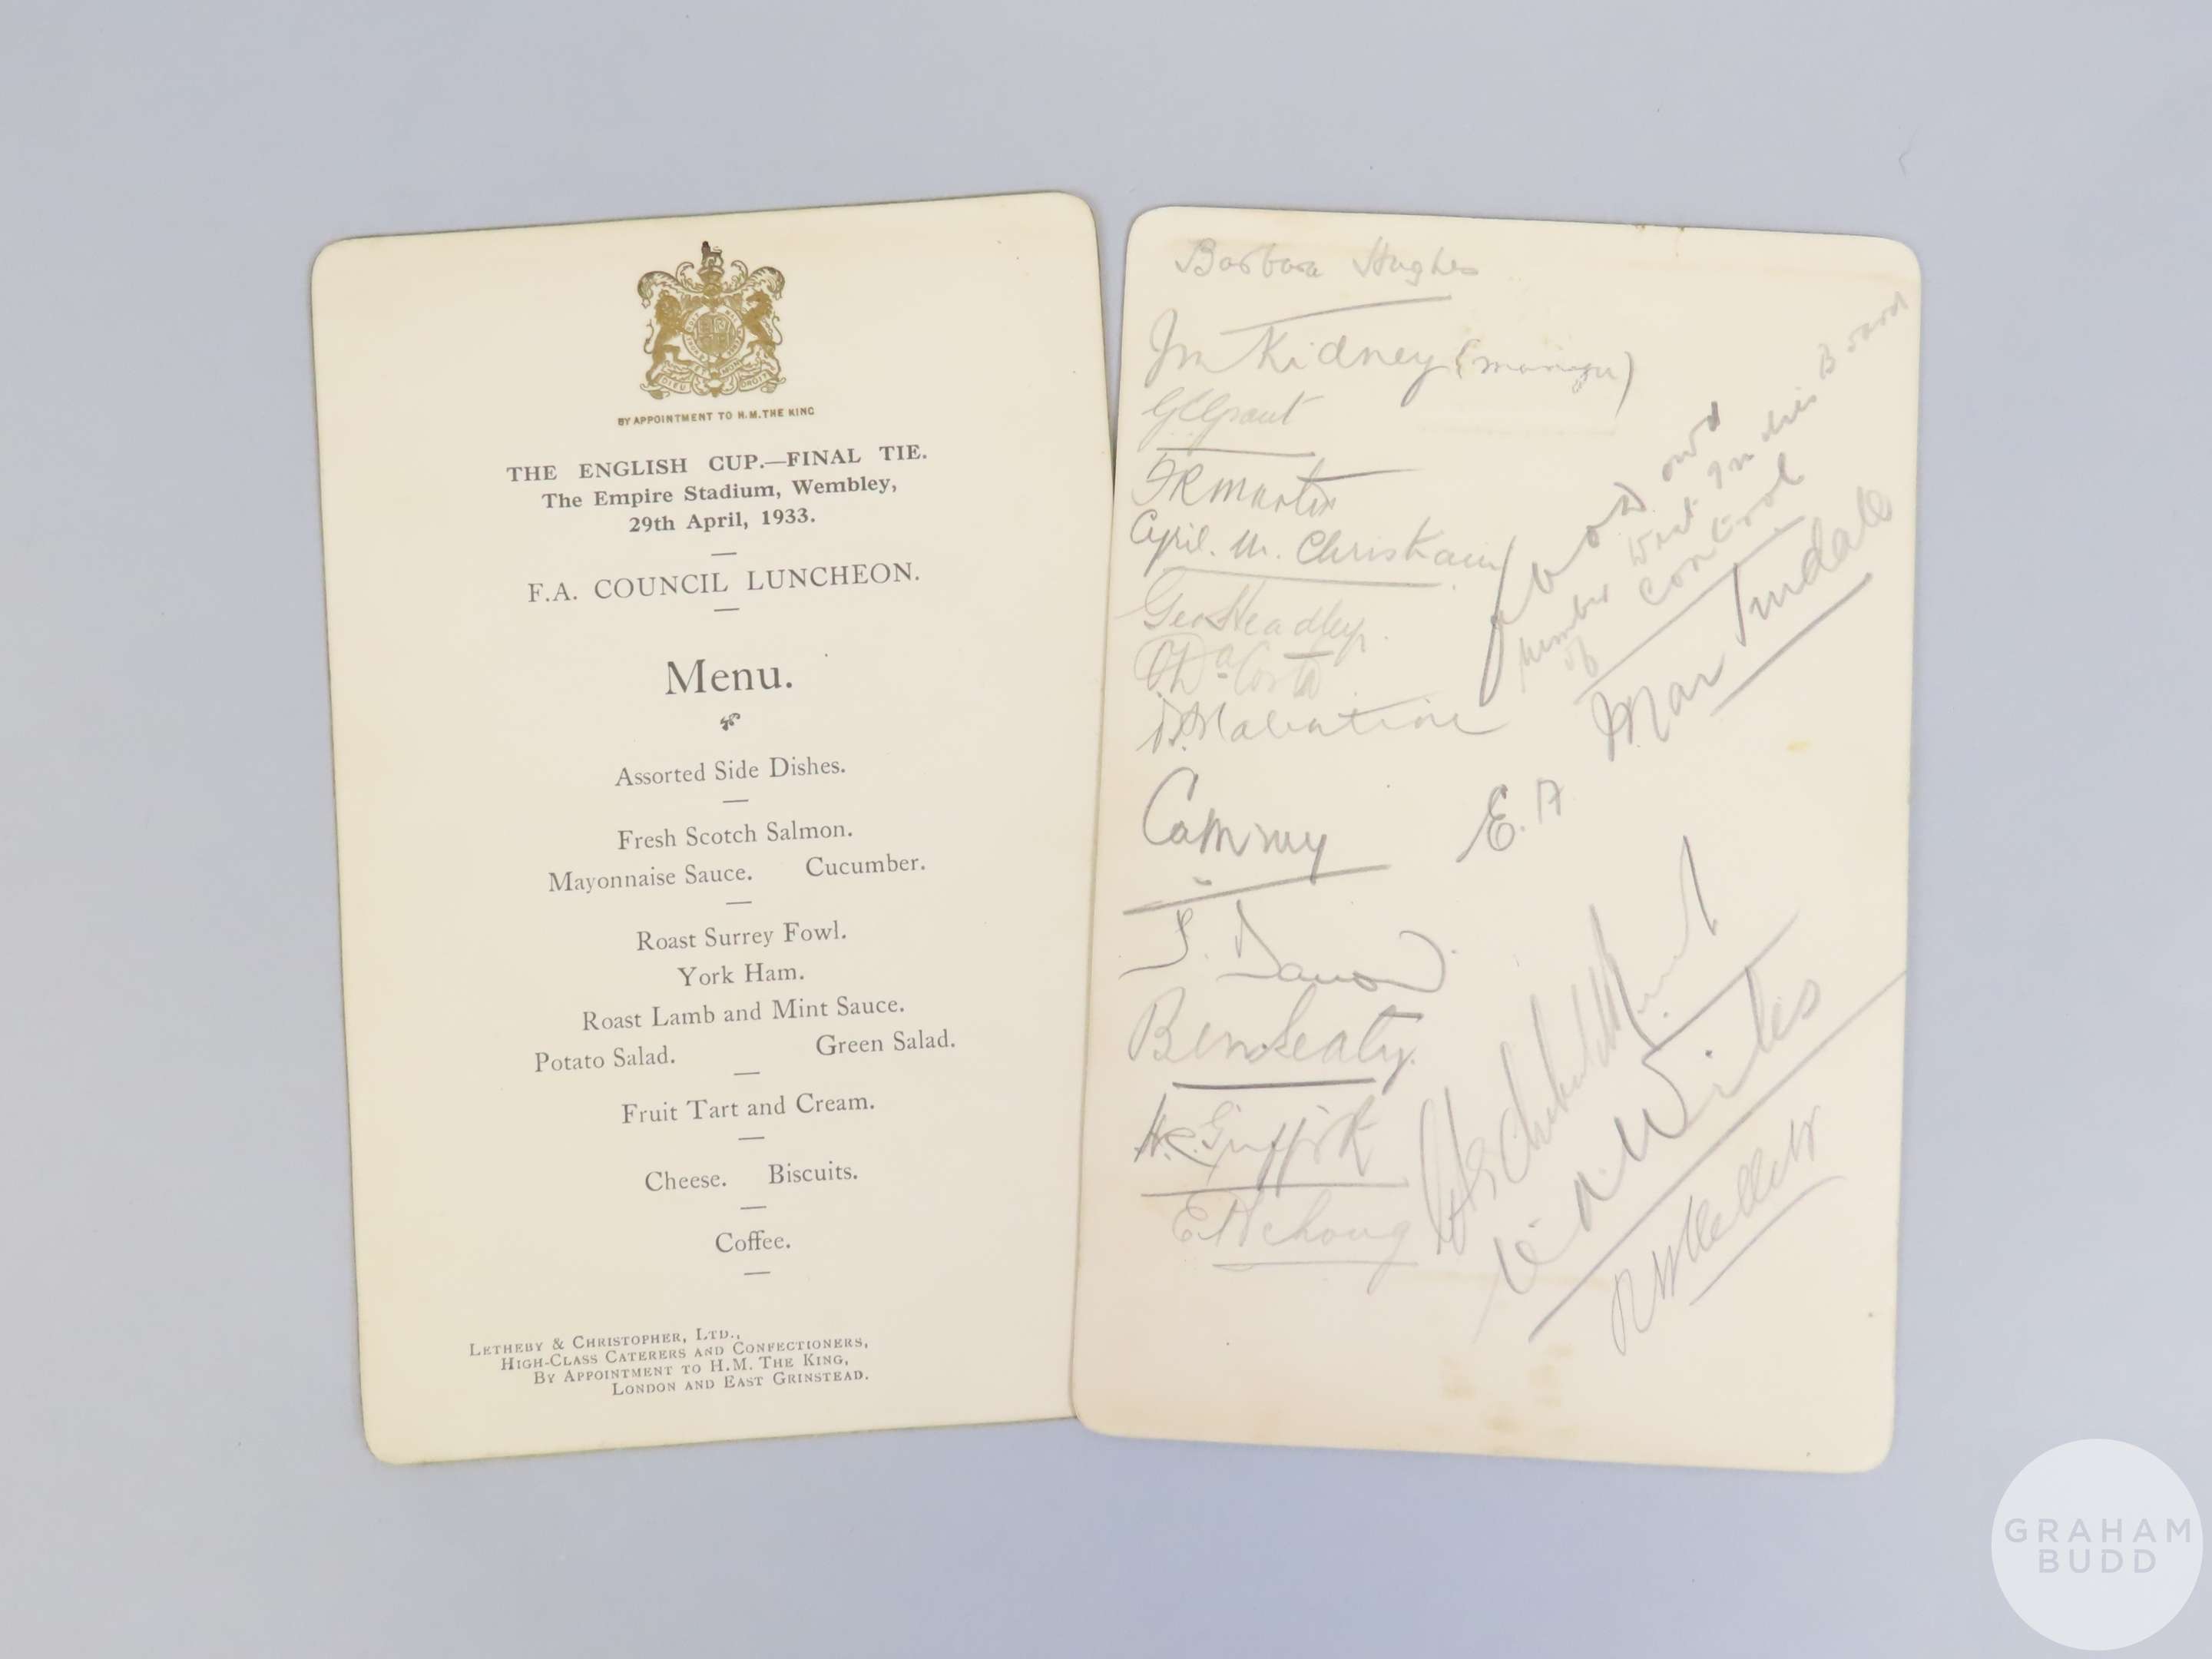 BY APPOINTMENT TO H.M. THE KING
THE ENGLISH CUP.—FINAL TIE.
The Empire Stadium, Wembley,
29th April, 1933.
F.A. COUNCIL LUNCHEON.
Menu.
Assorted Side Dishes.
Fresh Scotch Salmon.
Mayonnaise Sauce. Cucumber.
Roast Surrey Fowl.
York Ham.
Roast Lamb and Mint Sauce.
Potato Salad. Green Salad.
Fruit Tart and Cream.
Cheese. Biscuits.
Coffee.
LETHEBY & CHRISTOPHER, LTD.,
HIGH-CLASS CATERERS AND CONFECTIONERS,
BY APPOINTMENT TO H.M. THE KING,
LONDON AND EAST GRINSTEAD.
Barbara Hughes
Jm Kidney (manager)
G C Grant
F R Martin
Cyril. M. Christiani
Geo Headley.
O Da Costa
V. A Valentine
Cammy
Ben Sealy.
H.C. Griffith
E Achong
member West Indies Board
of control
E. A Martindale
C. A. Wiles
GRAHAM
BUDD